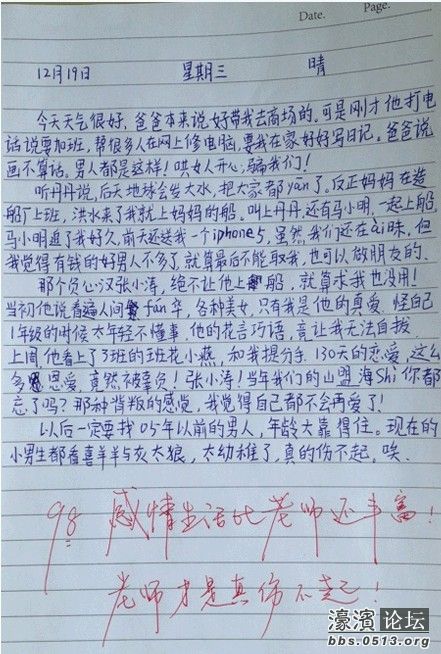 Date.
Page.
12月19日 星期三 晴
今天天气很好,爸爸本来说好带我去商场的,可是刚才他打电
话说要加班,帮很多人在网上修电脑,要我在家好好写日记。爸爸说
画不算话,男人都是这样!哄女人开心,骗我们!
听丹丹说,后天地球会发大水,把大家都yān了。反正妈妈在造
船厂上班,洪水来了我就上妈妈的船。叫上丹丹,还有马小明,一起上船,
马小明追了我好久,前天还送我一个iphone5,虽然我们还在ài昧,但
我觉得有钱的好男人不多了,就算最后不能取我,也可以做朋友的。
那个负心汉张小涛,绝不让他上船,就算求我也没用!
当初他说看遍人间fán华,各种美女,只有我是他的真爱,怪自己
1年级的时候太年轻不懂事,他的花言巧语,竟让我无法自拔。
上周他看上了3班的班花小燕,和我提分手,130天的恋爱,这么
多恩爱,竟然被辜负!张小涛!当年我们的山盟海Shì你都
忘了吗?那种背叛的感觉,我觉得自己都不会再爱了!
以后一定要找05年以前的男人,年龄大靠得住。现在的
小男生都看喜羊羊与灰太狼,太幼稚了,真的伤不起。唉
98 感情生活比老师还丰富!
老师才是真伤不起!
濠濱论坛
bbs.0513.org